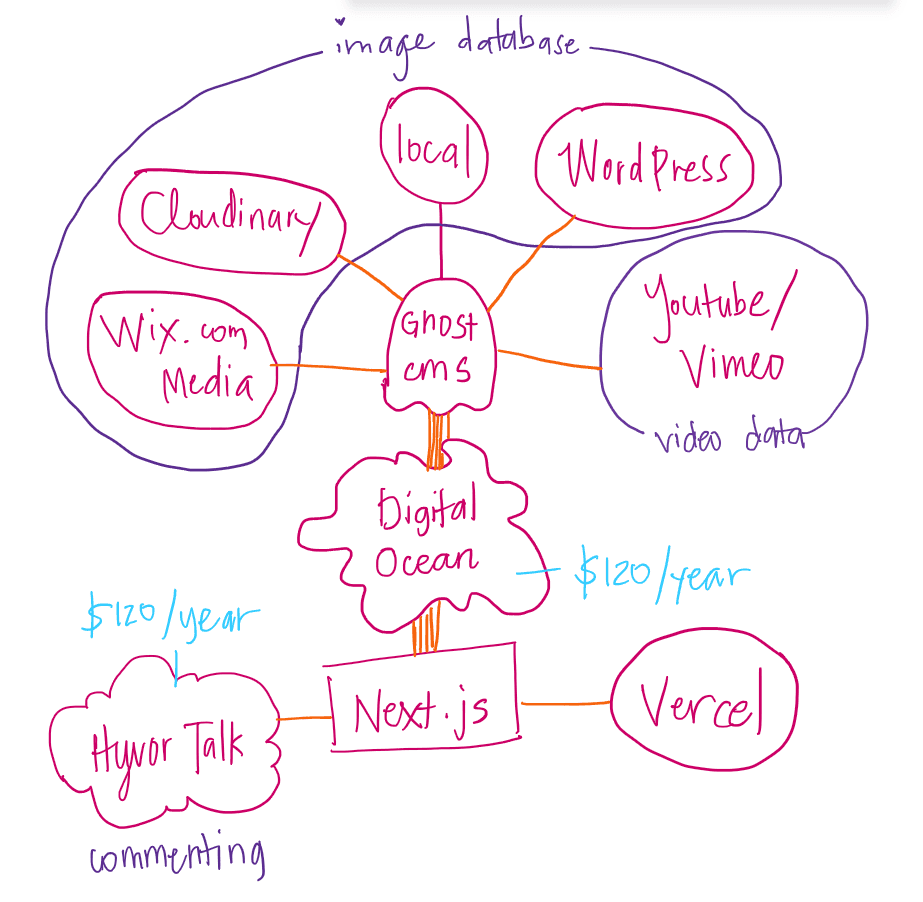 image database
local
WordPress
Cloudinary
Youtube/
Vimeo
Wix.com
Media
Ghost
cms
video data
Digital
Ocean
$120/year
$120/year
Next.js
Vercel
Hyvor Talk
commenting